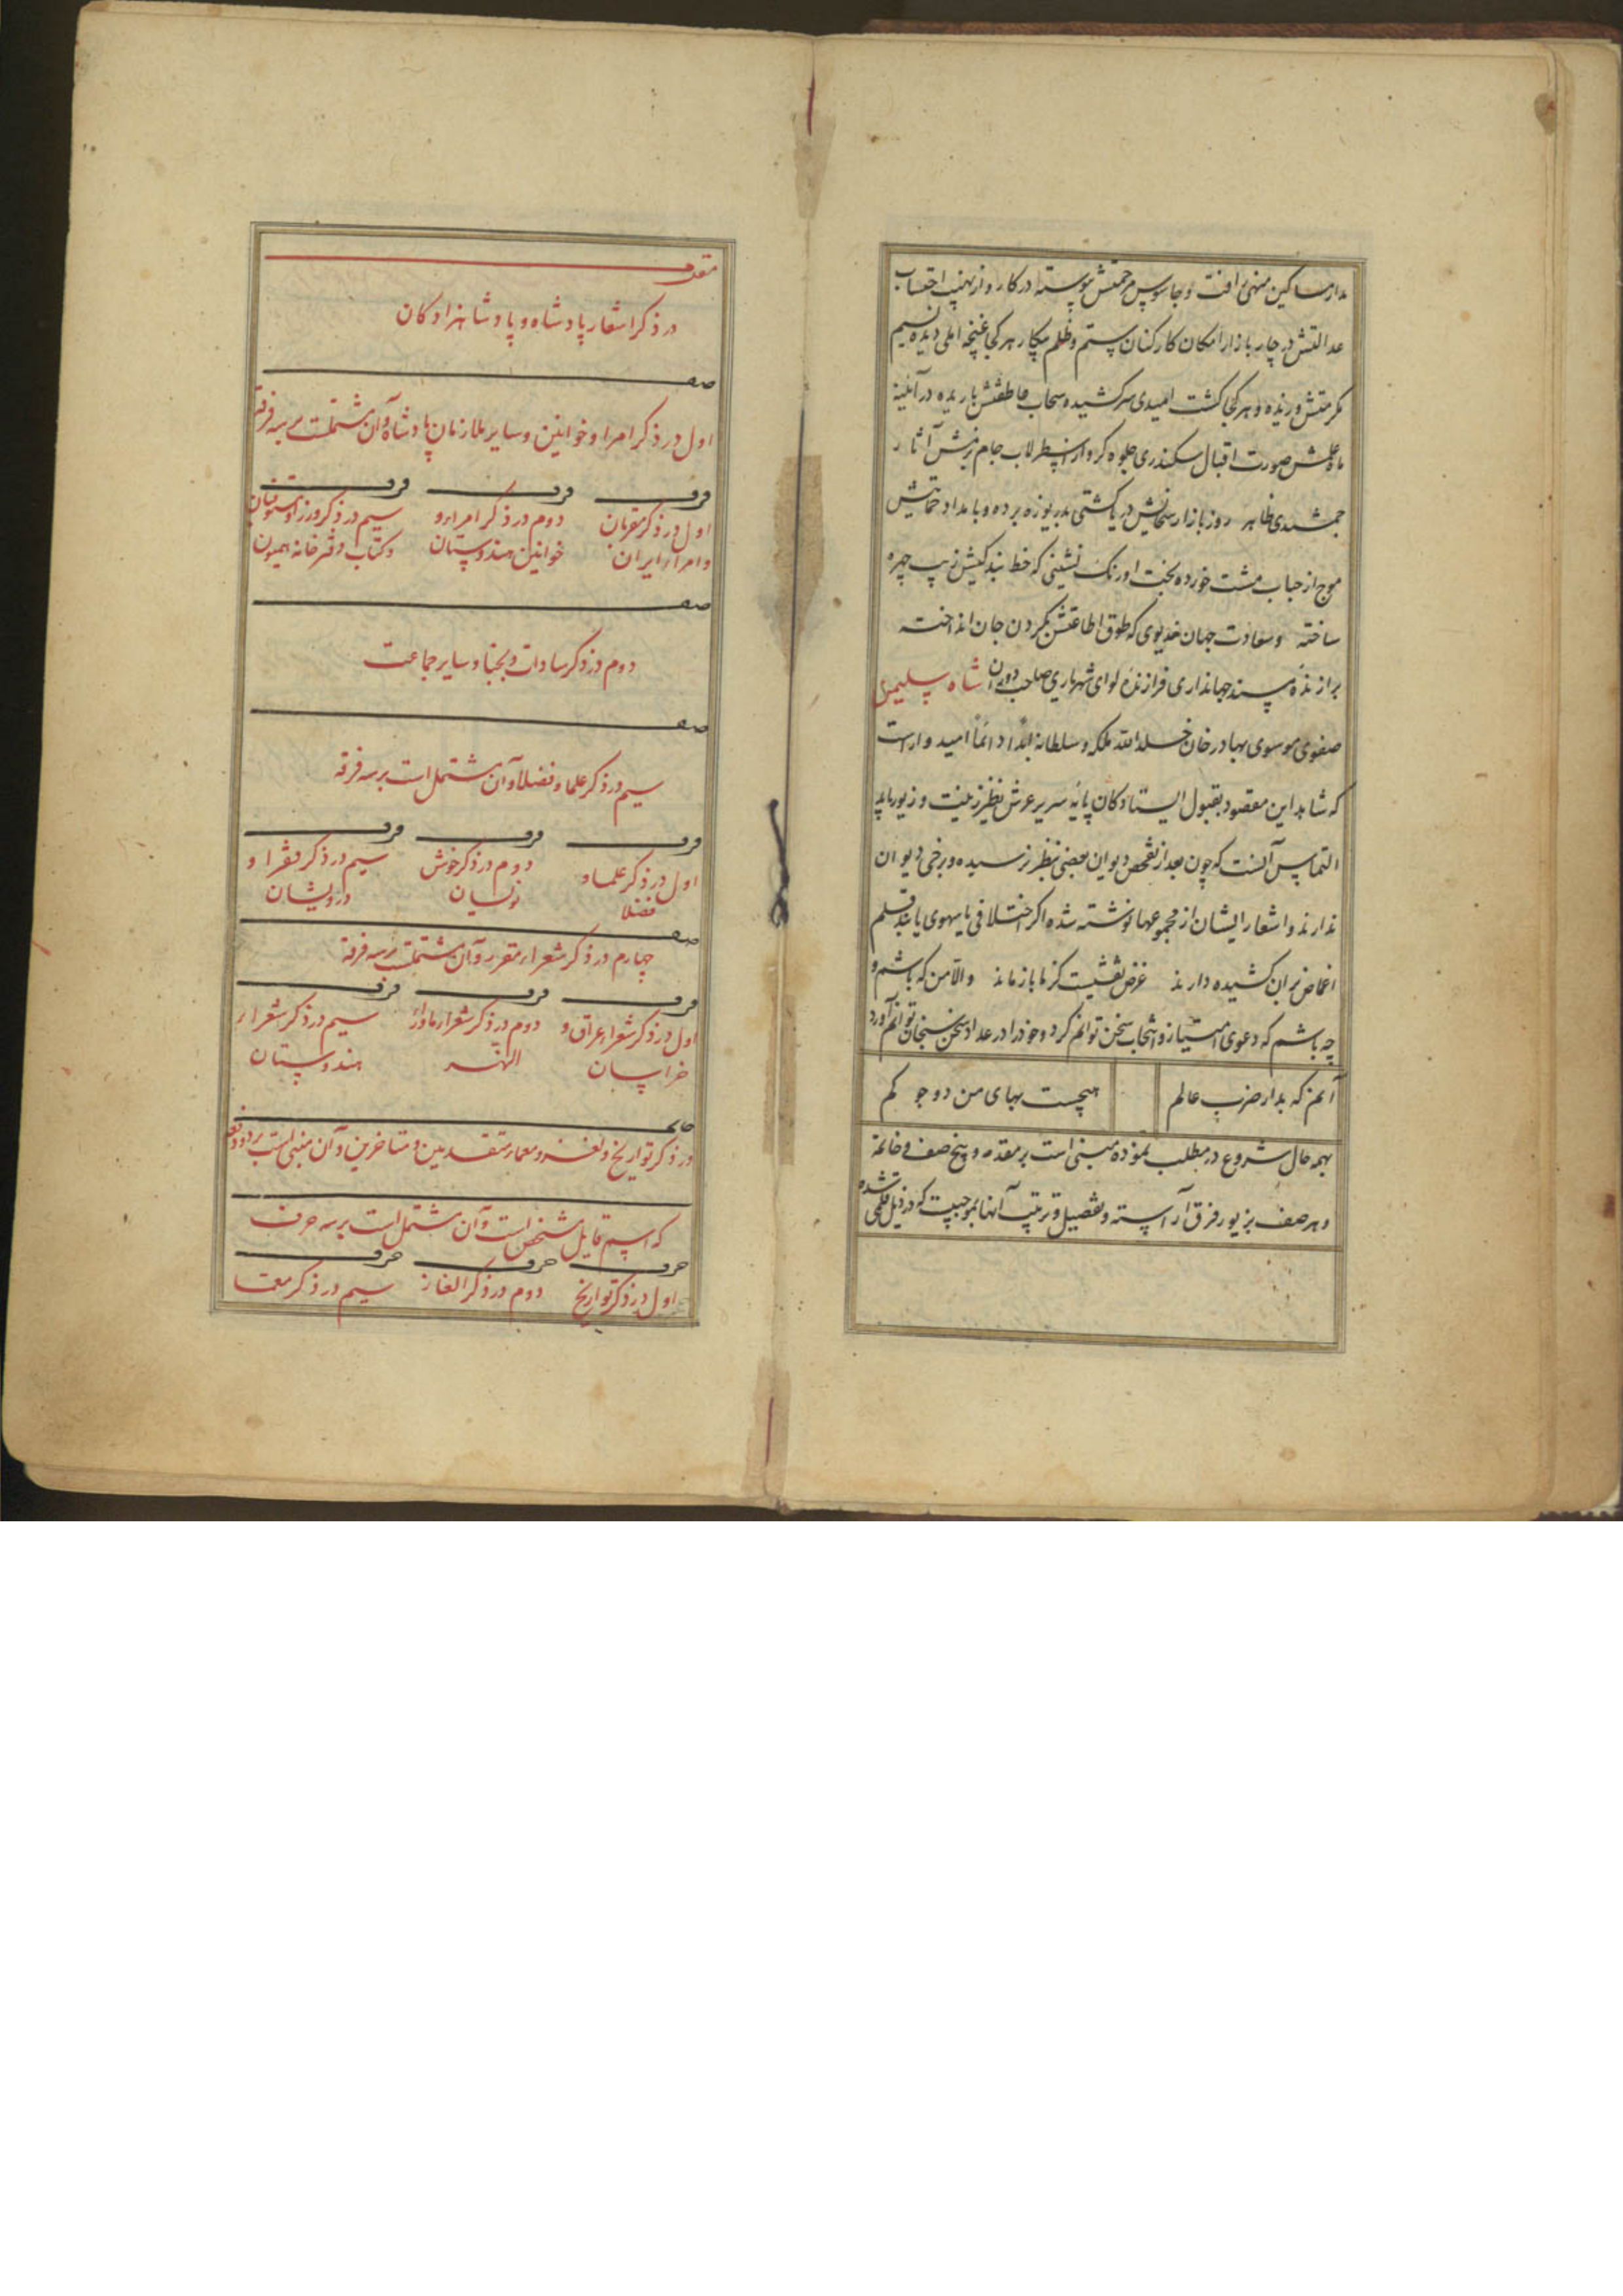 مدار مساکین منهی رافت و جاسوس مرحمتش پیوسته در کار و از نهیب احتساب
عدالتش در چار بازار امکان کارکنان ستم و ظلم بیکار هر کجا غنچه املی دیده نسیم
مکرمتش وزیده و هر کجا کشت امیدی سرکشیده سحاب عاطفتش باریده در آئینه
ماه علمش صورت اقبال سکندری جلوه کر و از اسطرلاب جام بزمش آثار
جمشیدی ظاهر روز بازار سخایش دریا کشتی بدریوزه برده و بامداد حمایتش
موج از حباب مشت خورده بخت اورنک نشینی که خط بندکیش زیب چهره
ساخته وسعادت جهان خدیوی که طوق اطاعتش بکردن جان انداخته
برازندهٔ مسند جهانداری فرازندهٔ لوای شهریاری صاحب دوران شاه سلیمان
صفوی موسوی بهادر خان خلد الله ملکه و سلطانه ابدا دائما امیدوار است
که شاهد این مقصود بقبول ایستادکان پایه سریر عرش نظیر زینت و زیور یابد
التماس آنست که چون بعد از تفحص دیوان بعضی بنظر نرسیده و برخی دیوان
ندارند و اشعار ایشان از مجموعها نوشته شده اکر اختلافی یا سهوی یابند قلم
اغماض بران کشیده دارند غرض نقشیست کز ما باز ماند والا من که باشم و
چه باشم که دعوی امتیاز و انتخاب سخن توانم کرد و خود را در عداد سخن سنجان توانم آورد
آنم که بدار ضرب عالم هیچست بهای من دو جو کم
بهمه حال شروع در مطلب نموده مبنی است بر مقدمه و پنج صف و خاتمه
و هر صف بزیور فرق آراسته و تفصیل و ترتیب آنها بموجبیست که در ذیل قلمی شده
مقدمه
در ذکر اشعار پادشاه و پادشاهزادکان
صف
اول در ذکر امرا و خوانین و سایر ملازمان پادشاه و آن مشتملست بر سه فرقه
فرقه فرقه فرقه
اول در ذکر مقربان دوم در ذکر امراء و سیم در ذکر وزرا و مستوفیان
و امراء ایران خوانین هندوستان و کتاب دفترخانه همیون
صف
دوم در ذکر سادات و نجبا و سایر جماعت
صف
سیم در ذکر علما و فضلا و آن مشتمل است بر سه فرقه
فرقه فرقه فرقه
اول در ذکر علما و دوم در ذکر خوش سیم در ذکر فقرا و
فضلا نویسان درویشان
صف
چهارم در ذکر شعراء مقرر و آن مشتملست بر سه فرقه
فرقه فرقه فرقه
اول در ذکر شعراء عراق و دوم در ذکر شعراء ماوراء سیم در ذکر شعراء
خراسان النهر هندوستان
خاتمه
در ذکر تواریخ و لغز و معماء متقدمین و متاخرین و آن مبنی است بر دو دفعه
که اسم قایل مشخص است و آن مشتمل است بر سه حرف
حرف حرف حرف
اول در ذکر تواریخ دوم در ذکر الغاز سیم در ذکر معما